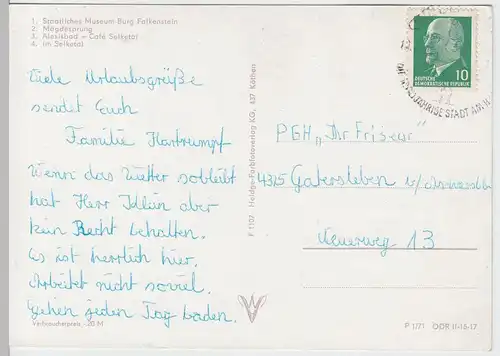 1. Staatliches Museum Burg Falkenstein
2. Mägdesprung
3. Alexisbad – Café Selketal
4. Im Selketal
Viele Urlaubsgrüße
sendet Euch
Familie Hartrumpf
Wenn das Wetter so bleibt
hat Herr aber
kein Recht behalten.
Es ist herrlich hier.
Arbeitet nicht soviel.
Gehen jeden Tag baden.
Verbraucherpreis -,20 M
P 1107 Heldge-Farbfotoverlag KG, 437 Köthen
DEUTSCHE
DEMOKRATISCHE REPUBLIK
10
JÄHRIGE STADT AM
PGH „Ihr Friseur“
4325 Gatersleben b/
Neuerweg 13
P 1/71 DDR II-15-17